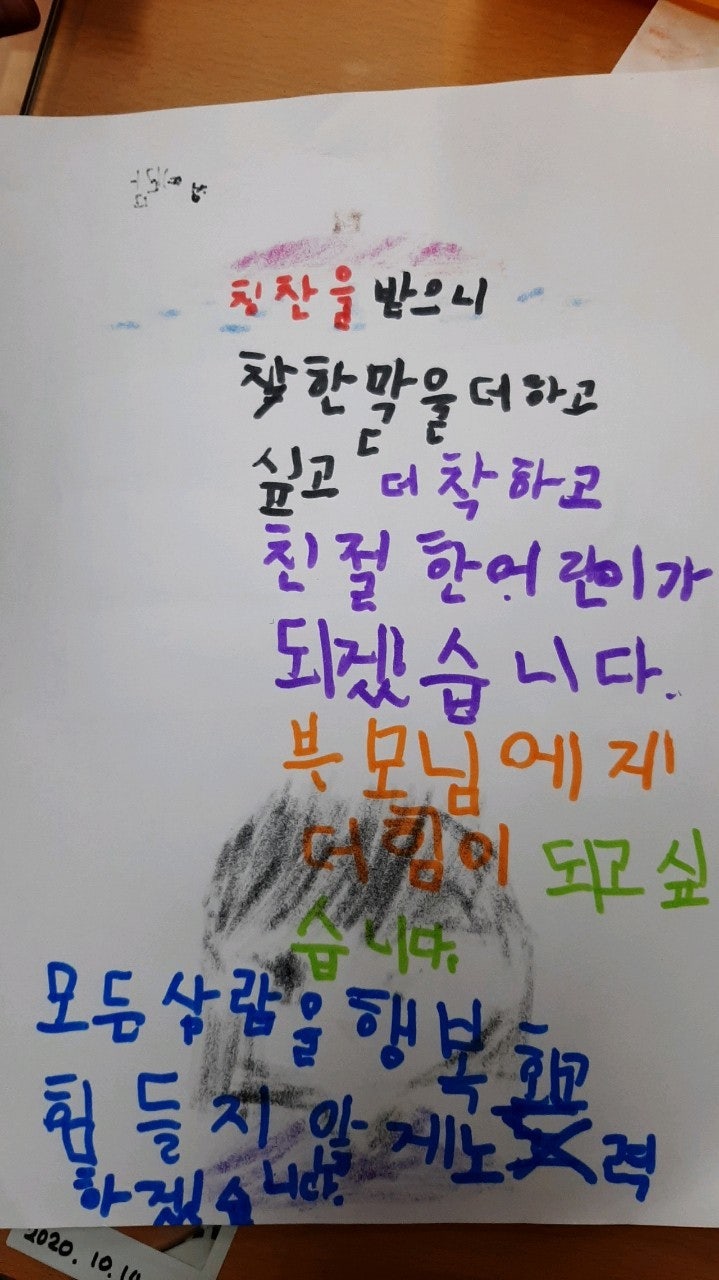 칭찬을 받으니
착한 막을 더 하고
싶고 더 착하고
친절 한어린이가
되겠습니다.
부모님에 제
더 힘이 되고 싶
습니다.
모든 삼람을 행복 하고
힘 들지 안 게 노력
하겠습니다.
2020. 10. 10